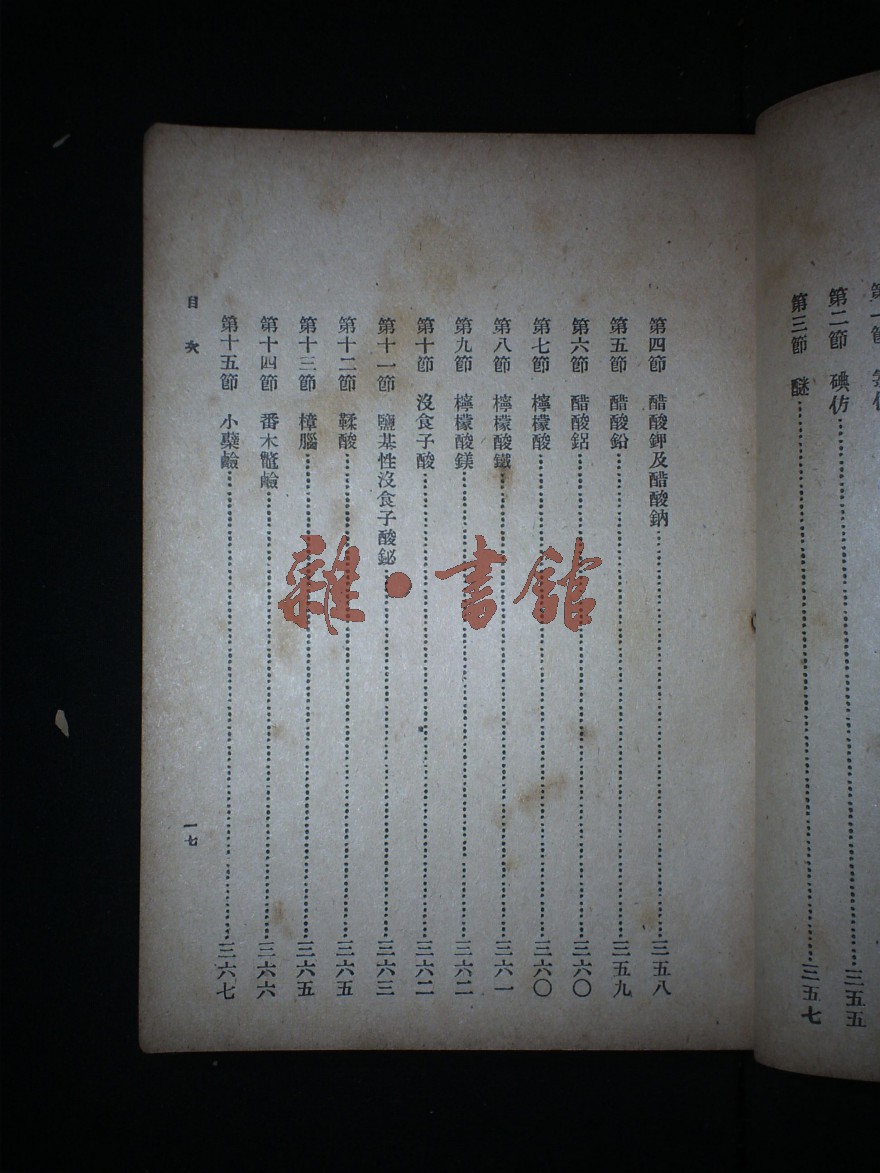 第二節　碘仿……三五五
第三節　醚……三五七
第四節　醋酸鉀及醋酸鈉……三五八
第五節　醋酸鉛……三五九
第六節　醋酸鋁……三六〇
第七節　檸檬酸……三六〇
第八節　檸檬酸鐵……三六一
第九節　檸檬酸鎂……三六二
第十節　沒食子酸……三六二
第十一節　鹽基性沒食子酸鉍……三六三
第十二節　鞣酸……三六五
第十三節　樟腦……三六五
第十四節　番木鼈鹼……三六六
第十五節　小蘗鹼……三六七
目次
一七
雜·書館